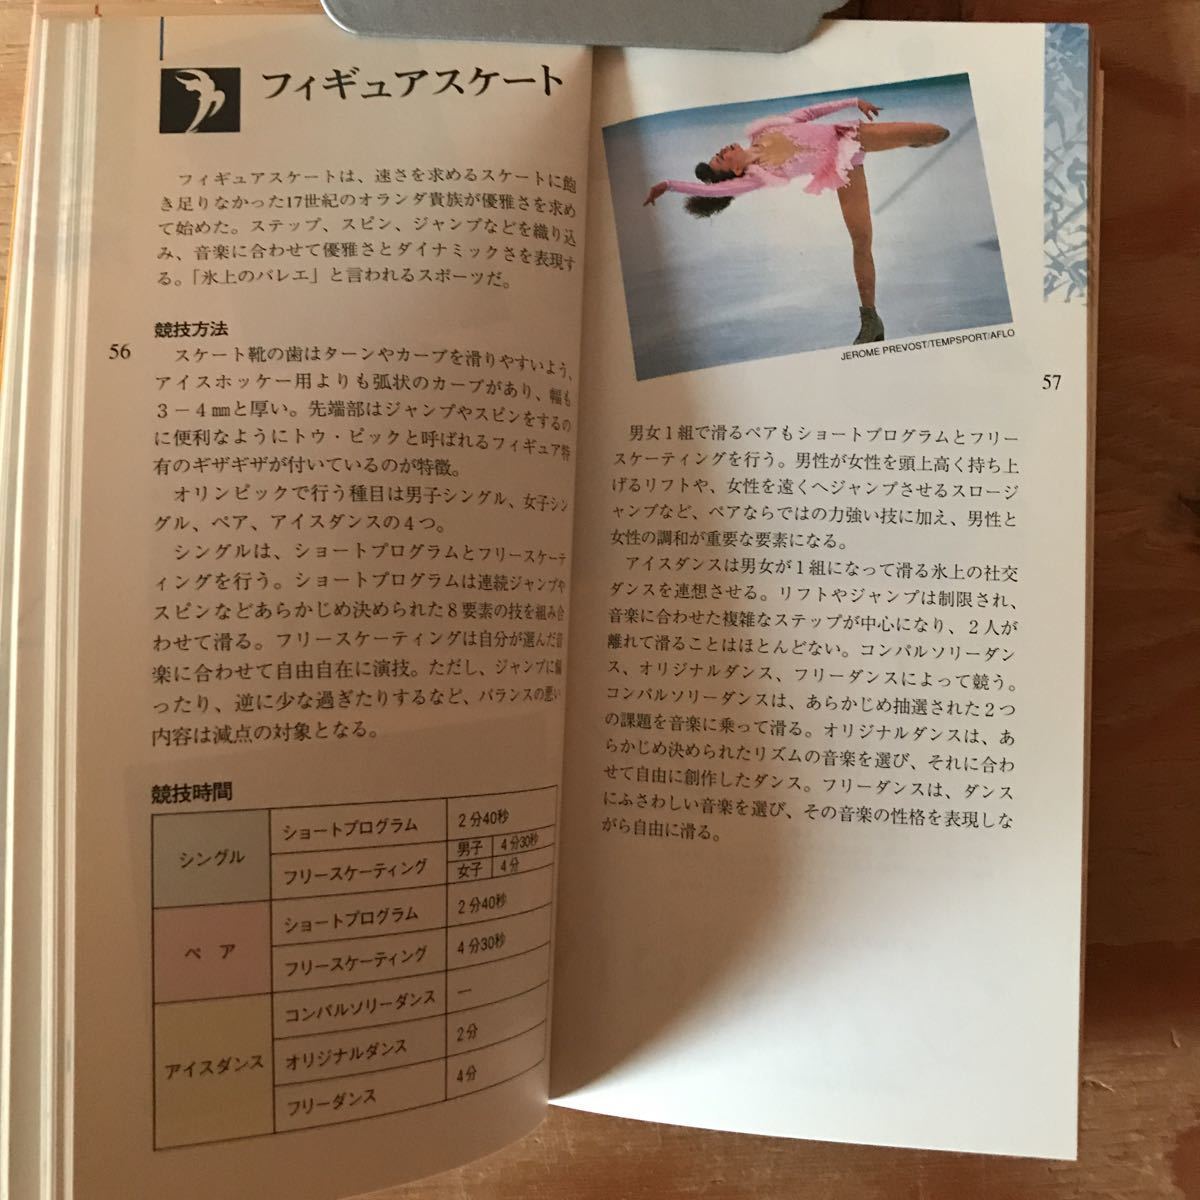 フィギュアスケート
フィギュアスケートは、速さを求めるスケートに飽
き足りなかった17世紀のオランダ貴族が優雅さを求め
て始めた。ステップ、スピン、ジャンプなどを織り込
み、音楽に合わせて優雅さとダイナミックさを表現す
る。「氷上のバレエ」と言われるスポーツだ。
競技方法
スケート靴の歯はターンやカーブを滑りやすいよう、
アイスホッケー用よりも弧状のカーブがあり、幅も
3－4㎜と厚い。先端部はジャンプやスピンをするの
に便利なようにトウ・ピックと呼ばれるフィギュア特
有のギザギザが付いているのが特徴。
オリンピックで行う種目は男子シングル、女子シン
グル、ペア、アイスダンスの4つ。
シングルは、ショートプログラムとフリースケーテ
ィングを行う。ショートプログラムは連続ジャンプや
スピンなどあらかじめ決められた8要素の技を組み合
わせて滑る。フリースケーティングは自分が選んだ音
楽に合わせて自由自在に演技。ただし、ジャンプに偏
ったり、逆に少な過ぎたりするなど、バランスの悪い
内容は減点の対象となる。
56
競技時間
シングル
ショートプログラム 2分40秒
フリースケーティング 男子 4分30秒
女子 4分
ペア
ショートプログラム 2分40秒
フリースケーティング 4分30秒
アイスダンス
コンパルソリーダンス ―
オリジナルダンス 2分
フリーダンス 4分
JEROME PREVOST/TEMPSPORT/AFLO
57
男女1組で滑るペアもショートプログラムとフリー
スケーティングを行う。男性が女性を頭上高く持ち上
げるリフトや、女性を遠くへジャンプさせるスロージ
ャンプなど、ペアならではの力強い技に加え、男性と
女性の調和が重要な要素になる。
アイスダンスは男女が1組になって滑る氷上の社交
ダンスを連想させる。リフトやジャンプは制限され、
音楽に合わせた複雑なステップが中心になり、2人が
離れて滑ることはほとんどない。コンパルソリーダン
ス、オリジナルダンス、フリーダンスによって競う。
コンパルソリーダンスは、あらかじめ抽選された2つ
の課題を音楽に乗って滑る。オリジナルダンスは、あ
らかじめ決められたリズムの音楽を選び、それに合わ
せて自由に創作したダンス。フリーダンスは、ダンス
にふさわしい音楽を選び、その音楽の性格を表現しな
がら自由に滑る。